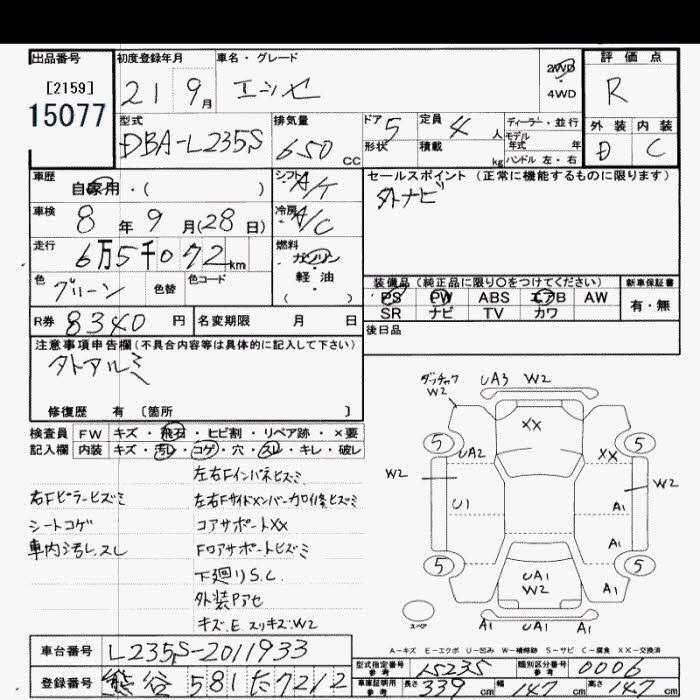 出品番号 初度登録年月 車名・グレード 2WD 評価点
[2159] 21 9月 エッセ 4WD R
15077
型式 排気量 ドア 5 定員 4人 ディーラー・並行 外装 内装
DBA-L235S 650 CC 形状 積載 kg モデル年式 年 D C
ハンドル 左・右
車歴 自家用・( ) シフト A/T セールスポイント (正常に機能するものに限ります)
車検 8年 9月(28日) 冷房 A/C 外ナビ
走行 6万5千072km 燃料 ガソリン・軽油 ( )
色 グリーン 色替 色コード
装備品(純正品に限り〇をつけてください) 新車保証書
PS PW ABS エアB AW 有・無
SR ナビ TV カワ
R券 8340円 名変期限 月 日 後日品
注意事項申告欄(不具合内容等は具体的に記入して下さい)
外アルミ
修復歴 有 〔箇所 〕
検査員 FW キズ・飛石・ヒビ割・リペア跡・×要
記入欄 内装 キズ・汚レ・コゲ・穴・スレ・キレ・破レ
左右Fインパネヒズミ
右Fピラーヒズミ 左右Fサイドメンバー加修ヒズミ
シートコゲ コアサポートXX
車内汚レ、スレ Fロアサポートヒズミ
下廻りS.C.
外装Pアセ
キズ.E.スリキズ.W2
ダッチャク W2 UA3 W2
XX
5 UA2 XX 5
W2 W2
U1 A1
A1
5 UA1 W2 A1 5
スペア A1 UA1 A1
A-キズ E-エクボ U-凹み W-補修跡 S-サビ C-腐食 XX-交換済
車台番号 L235S-2011933
型式指定番号 参考 15235 類別区分番号 参考 0006
登録番号 熊谷 581 た 7212
車庫証明用 参考 長さ 339cm 幅 147cm 高さ 147cm